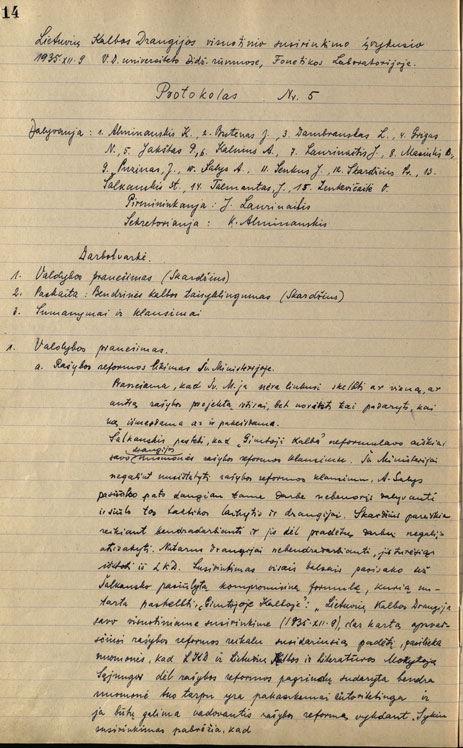 14
Lietuvių Kalbos Draugijos visuotinio susirinkimo įvykusio
1935.XII.9 V.D. universiteto didž. rūmuose, Fonetikos Laboratorijoje.
Protokolas Nr. 5
Dalyvauja: 1. Alminauskis K., 2. J., 3. Dambrauskas L., 4. Grigas
N., 5. Jakštas P., 6. Kalnius A., 7. Laurinaitis J., 8.
9. Puzinas, J., 10. Salys A., 11. Senkus J., 12. Skardžius Pr., 13.
Šalkauskis St., 14. Talmantas, J., 15. O.
Pirmininkauja: J. Laurinaitis
Sekretoriauja: K. Alminauskis
Darbotvarkė.
1. Valdybos pranešimas (Skardžius)
2. Paskaita: Bendrinės kalbos taisyklingumas (Skardžius)
3. Sumanymai ir klausimai
1. Valdybos pranešimas.
a. Rašybos reformos likimas Šv. Ministerijoje.
Pranešama, kad Šv. M-ja nėra linkusi skelbti ar vieną, ar
antrą rašybos projektą ištisai, bet norėtų tai padaryti, kai
ką išmesdama ar ir pakeisdama.
Šalkauskis prašo, kad „Gimtoji Kalba" suformuluotų aiškiai
savo draugijos nuomonę rašybos reformos klausimu. Šv. Ministerijai
negalint nusistatyti rašybos reformos klausimu. A. Salys
pats daugiau tame darbe nebenorįs dalyvauti
ir siūlo tos taktikos laikytis ir draugijai. Skardžius pareiškia
reikiant bendradarbiauti ir jis dėl pradėtų darbų negalįs
atsisakyti. Nutarus draugijai nebendradarbiauti, jis turėsiąs
išstoti iš LKD. Susirinkimas visais balsais pasisako už
Šalkausko pasiūlytą kompromisinę formulę, kurią nu-
tarta paskelbti „Gimtojoje Kalboje": „Lietuvių Kalbos Draugija
savo visuotiniame susirinkime (1935-XII-9), dar kartą apsvar-
sčiusi rašybos reformos reikalu susidariusią padėtį, pareiškia
nuomonę, kad LKD ir Lietuvių Kalbos ir Literatūros Mokytojų
Sąjungos dėl rašybos reformos pagrindų sudaryta bendra
nuomonė tuo tarpu yra pakankamai autoritetinga ir
ja būtų galima vadovautis rašybos reformą vykdant. Sykiu
susirinkimas pabrėžia, kad